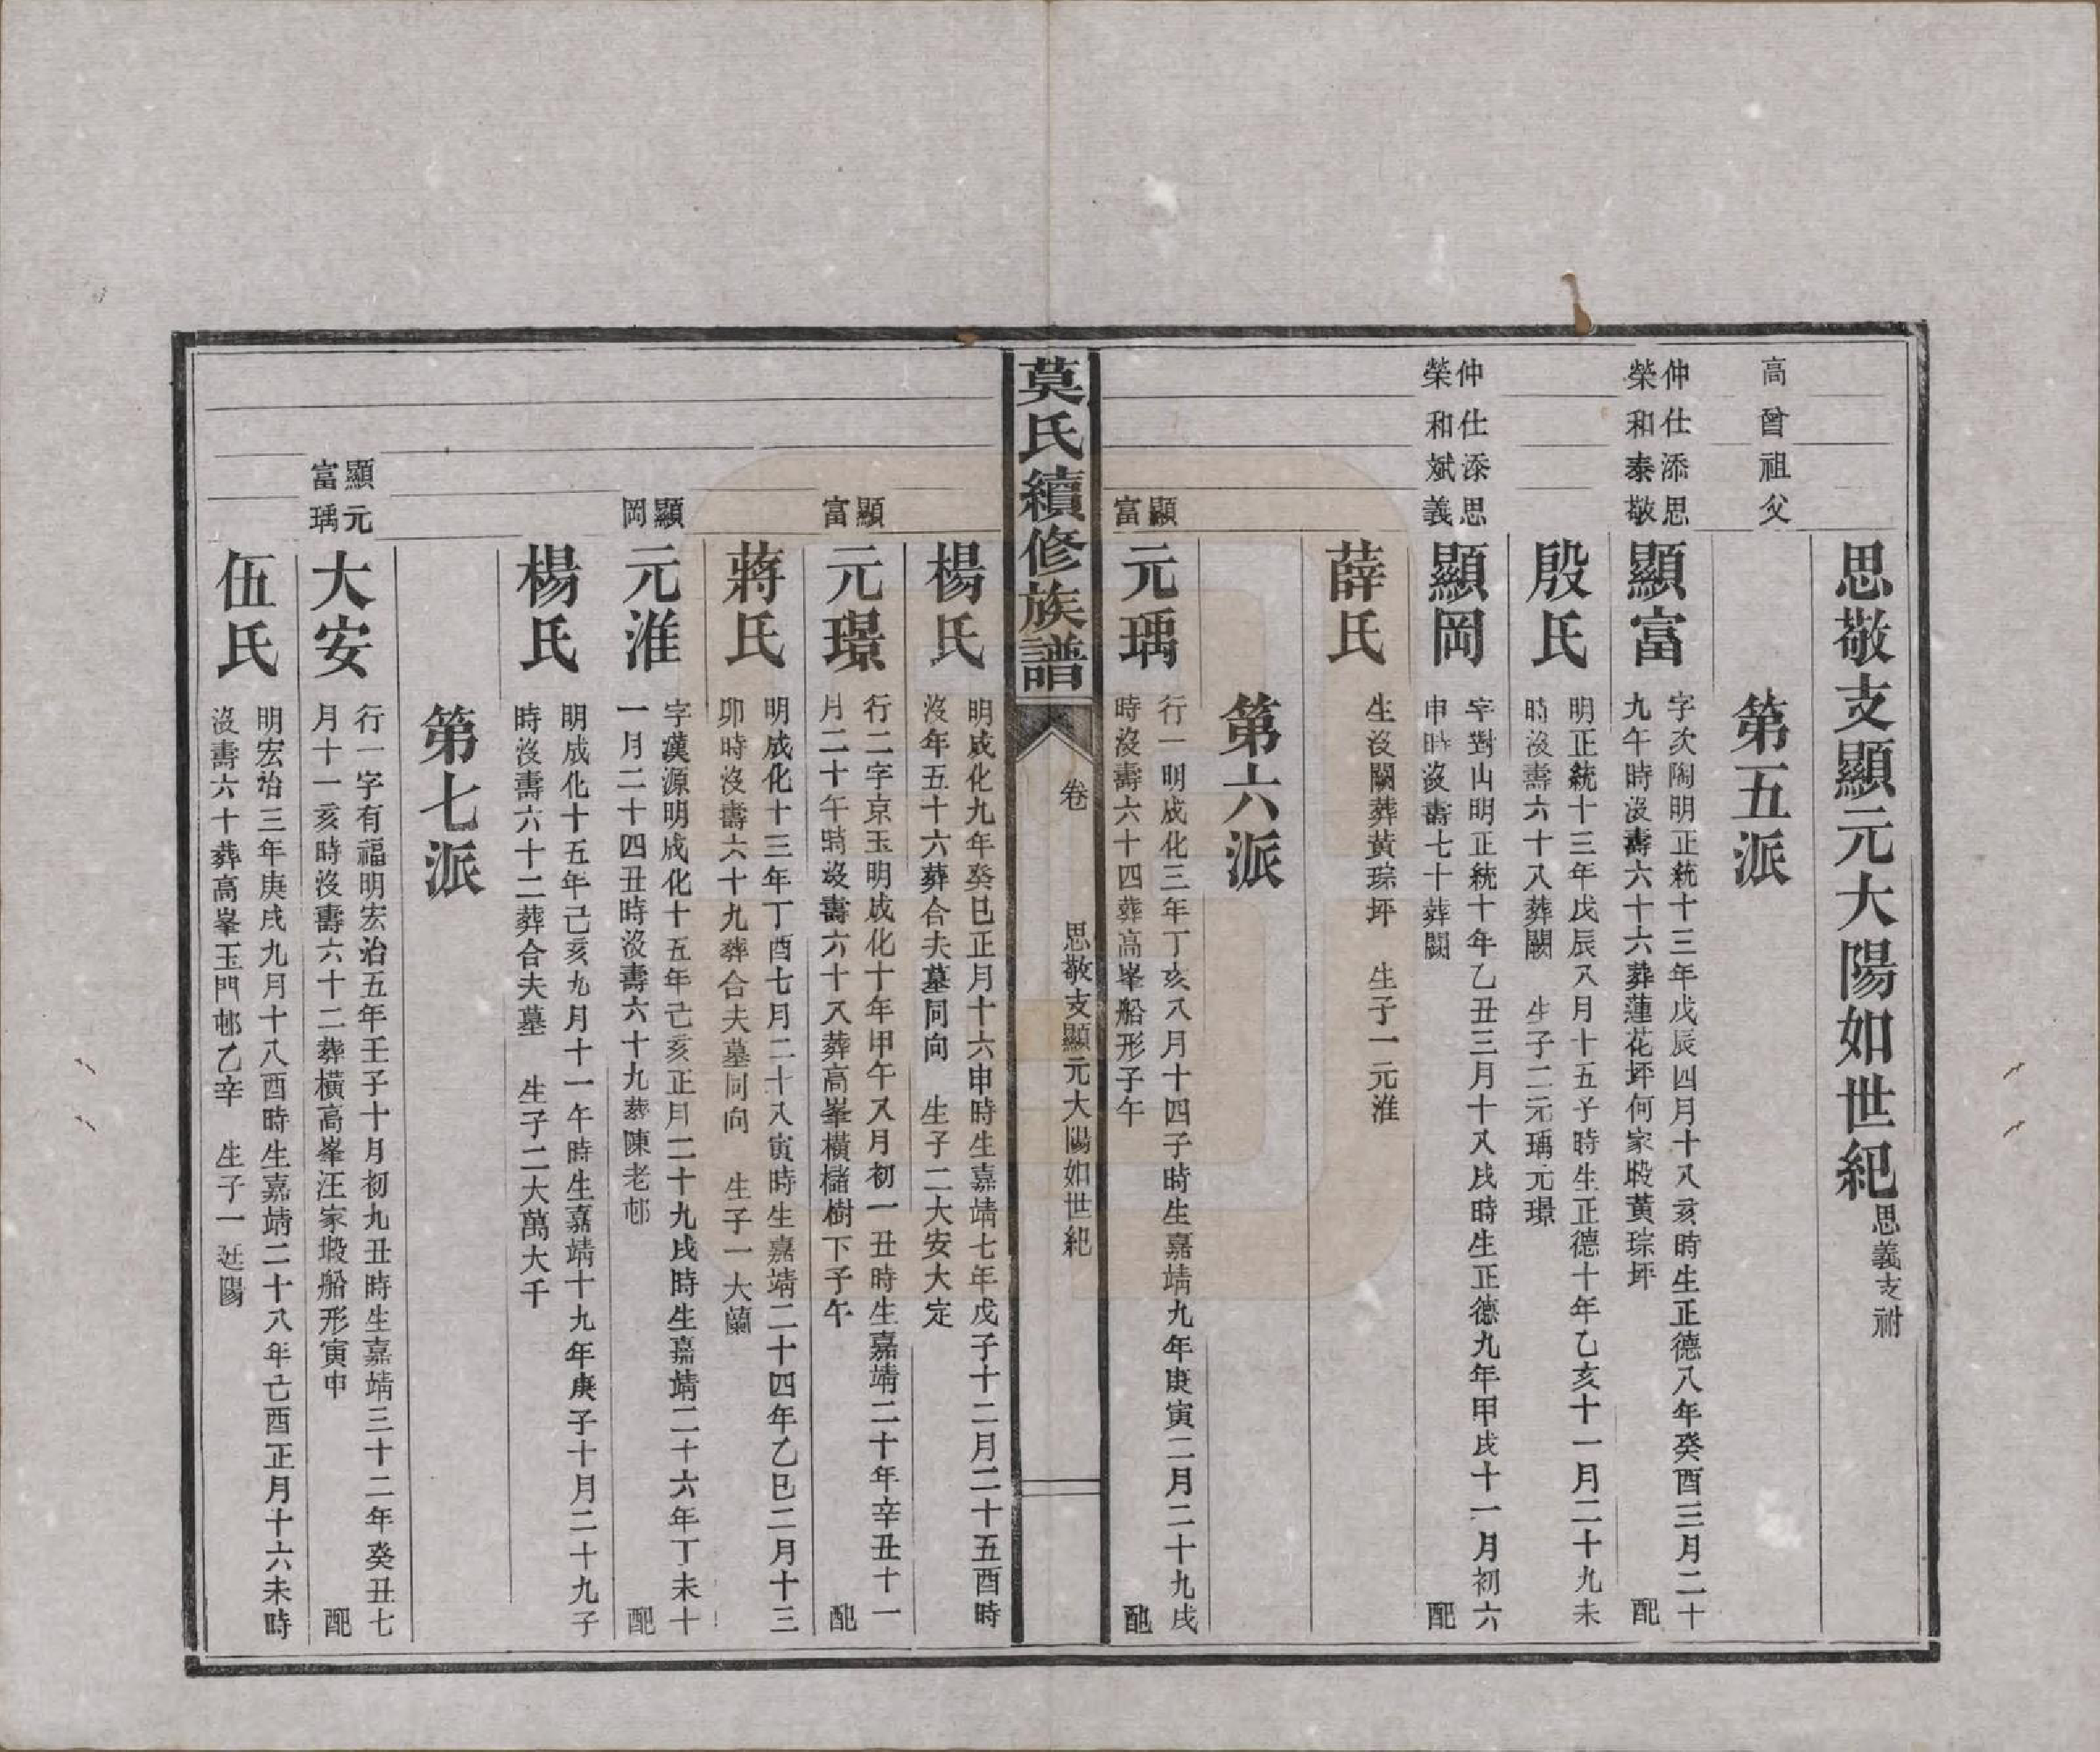 思敬支顯元大陽如世紀 思義支祔
高 曾 祖 父
第五派
仲仕添思
榮和泰敬
顯富
字次陶明正統十三年戊辰四月十八亥時生正德八年癸酉三月二十
九午時沒壽六十六葬蓮花坪何家塅黃琮坪 配
殷氏
明正統十三年戊辰八月十五子時生正德十年乙亥十一月二十九未
時沒壽六十八葬闕 生子二元瑀元璟
仲仕添思
榮和斌義
顯岡
字對山明正統十年乙丑三月十八戌時生正德九年甲戌十一月初六
申時沒壽七十葬闕 配
薛氏
生沒闕葬黃琮坪 生子一元淮
第六派
顯
富
元瑀
行一明成化三年丁亥八月十四子時生嘉靖九年庚寅二月二十九戌
時沒壽六十四葬高峯船形子午 配
莫氏續修族譜
卷
思敬支顯元大陽如世紀
楊氏
明成化九年癸巳正月十六申時生嘉靖七年戊子十二月二十五酉時
沒年五十六葬合夫墓同向 生子二大安大定
顯
富
元璟
行二字京玉明成化十年甲午八月初一丑時生嘉靖二十年辛丑十一
月二十午時沒壽六十八葬高峯橫櫧樹下子午 配
蔣氏
明成化十三年丁酉七月二十八寅時生嘉靖二十四年乙巳二月十三
卯時沒壽六十九葬合夫墓同向 生子一大蘭
顯
岡
元淮
字漢源明成化十五年己亥正月二十九戌時生嘉靖二十六年丁未十
一月二十四丑時沒壽六十九葬陳老邨 配
楊氏
明成化十五年己亥九月十一午時生嘉靖十九年庚子十月二十九子
時沒壽六十二葬合夫墓 生子二大萬大千
第七派
顯元
富瑀
大安
行一字有福明宏治五年壬子十月初九丑時生嘉靖三十二年癸丑七
月十一亥時沒壽六十二葬橫高峯汪家塅船形寅申 配
伍氏
明宏治三年庚戌九月十八酉時生嘉靖二十八年己酉正月十六未時
沒壽六十葬高峯玉門邨乙辛 生子一廷陽